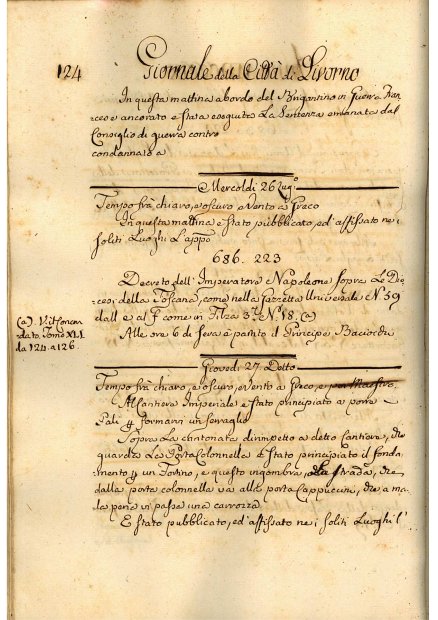 124
Giornale della Città di Livorno
In questa mattina abordo del Brigantino in Guerra Fran-
cese ancorato e stata eseguita La Sentenza emanata dal
Consiglio di guerra contro
condannato a
Mercoldi 26 Lug.º
Tempo frà chiaro, e oscuro e Vento a Greco
In questa mattina e Stato pubblicato, ed'affissato nei
soliti Luoghi L'appo
686. 223
Decreto dell'Imperatore Napoleone sopra Le Dio-
cesi della Toscana, come nella Gazzetta Universale N. 59
dall e al F come in Filza 3ª N. 18. (a)
(a) Tomo XLI
da 124. a 126.
Alle ore 6 di Sera è partito il Principe Baciocchi
Giovedi 27. Detto
Tempo frà chiaro, e oscuro, e vento a Greco, e poi Maestro.
Al Cantiere Imperiale e Stato principiato a porre
Pali formare un serraglio
Sopra La cantonata dirimpetto a detto Cantiere, che
guarda La Porta Colonnella e Stato principiato il fonda-
mento un Forino, e questo ingombra, La Strada, che
dalla porta colonnella va alla porta Cappuccini, che a ma-
la pena vi passa una carrozza
E Stato pubblicato, ed'affissato nei Soliti Luoghi l'